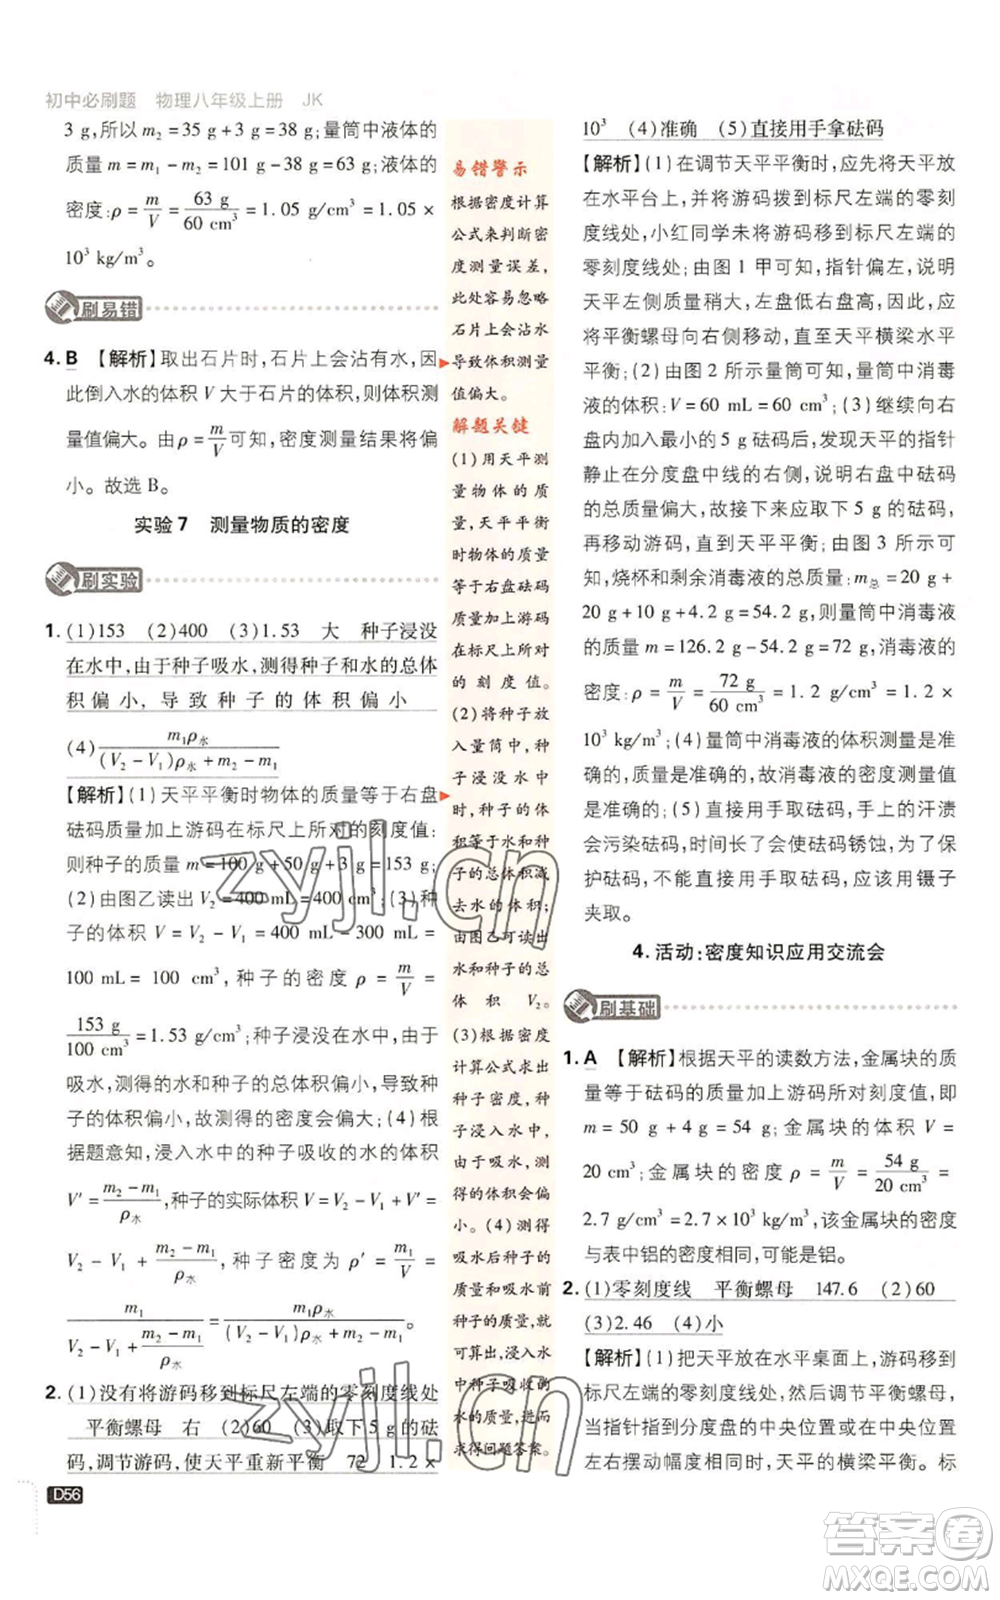 初中必刷题 物理八年级上册 JK
3 g,所以 m₂ = 35 g + 3 g = 38 g;量筒中液体的
质量 m = m₁ - m₂ = 101 g - 38 g = 63 g;液体的
密度:ρ = m/V = 63 g/60 cm³ = 1.05 g/cm³ = 1.05 ×
10³ kg/m³。
刷易错
4. B 【解析】取出石片时,石片上会沾有水,因
此倒入水的体积 V 大于石片的体积,则体积测
量值偏大。由 ρ = m/V 可知,密度测量结果将偏
小。故选 B。
实验 7 测量物质的密度
刷实验
1. (1)153 (2)400 (3)1.53 大 种子浸没
在水中,由于种子吸水,测得种子和水的总体
积偏小,导致种子的体积偏小
(4) m₁ρ水/((V₂ - V₁)ρ水 + m₂ - m₁)
【解析】(1)天平平衡时物体的质量等于右盘
砝码质量加上游码在标尺上所对的刻度值:
则种子的质量 m = 100 g + 50 g + 3 g = 153 g;
(2)由图乙读出 V₂ = 400 mL = 400 cm³,则种
子的体积 V = V₂ - V₁ = 400 mL - 300
mL = 100 mL = 100 cm³,种子的密度 ρ = m/V =
153 g/100 cm³ = 1.53 g/cm³;种子浸没在水中,由于
吸水,测得的水和种子的总体积偏小,则种
子的体积偏小,故测得的密度会偏大;(4)根
据题意知,浸入水中的种子吸收的水的体积
V′ = (m₂ - m₁)/ρ水,种子的实际体积 V = V₂ - V₁ + V′ =
V₂ - V₁ + (m₂ - m₁)/ρ水,种子的密度 ρ′ = m/V =
m₁/(V₂ - V₁ + (m₂ - m₁)/ρ水) = m₁ρ水/((V₂ - V₁)ρ水 + m₂ - m₁)。
2. (1)没有将游码移到标尺左端的零刻度线处
平衡螺母 右 (2)60 (3)取下 5 g 的砝
码,调节游码,使天平重新平衡 72 1.2 ×
D56
易错警示
根据密度计算
公式来判断密
度测量误差,
此处容易忽略
石片上沾水
导致体积测量
值偏大。
解题关键
(1)用天平测
量物体的质
量,天平平衡
时物体的质量
等于右盘砝码
质量加上游码
在标尺所对
的刻度值。
(2)将种子放
入量筒中,种
子浸没水中
时,种子的体
积等于水和种
子的总体积减
去水的体积;
由图乙可读出
水和种子的总
体积 V₂。
(3)根据密度
计算公式求出
种子密度,种
子浸入水中,
由于吸水,测
得的体积会偏
小。(4)测得
吸水后种子的
质量和吸水前
种子的质量,就
可算出,浸入水
中种子吸收的
水的质量,进而
求得问题答案。
10³ (4)准确 (5)直接用手拿砝码
【解析】(1)在调节天平平衡时,应先将天平放
在水平台上,将游码拨到标尺左端的零刻
度线处,小红同学未将游码移到标尺左端的
零刻度线处;由图 1 甲可知,指针偏左,说明
天平左侧质量稍大,左盘低右盘高,因此,应
将平衡螺母向右侧移动,直至天平横梁水平
平衡;(2)由图 2 所示量筒可知,量筒中消毒
液的体积:V = 60 mL = 60 cm³;(3)继续向右
盘内加入最小的 5 g 砝码后,发现天平的指针
静止在分度盘中线的右侧,说明右盘中砝码
的总质量偏大,故接下来应取下 5 g 的砝码,
再移动游码,直到天平平衡;由图 3 所示可
知,烧杯和剩余消毒液的总质量:m总 = 20 g +
20 g + 10 g + 4.2 g = 54.2 g,则量筒中消毒液
的质量 m = 126.2 g - 54.2 g = 72 g;消毒液的
密度:ρ = m/V = 72 g/60 cm³ = 1.2 g/cm³ = 1.2 ×
10³ kg/m³;(4)量筒中消毒液的体积测量是准
确的,质量测量也是准确的,故消毒液的密度测量值
是准确的;(5)直接用手取砝码,手上的汗渍
会污染砝码,时间长了会使砝码锈蚀,为了保
护砝码,不能直接用手取砝码,应该用镊子
夹取。
4. 活动:密度知识应用交流会
刷基础
1. A 【解析】根据天平的读数方法,金属块的质
量等于砝码的质量加上游码所对刻度值,即
m = 50 g + 4 g = 54 g;金属块的体积 V =
20 cm³;金属块的密度 ρ = m/V = 54 g/20 cm³ =
2.7 g/cm³ = 2.7 × 10³ kg/m³,该金属块的密度
与表中铝的密度相同,可能是铝。
2. (1)零刻度线 平衡螺母 147.6 (2)60
(3)2.46 (4)小
【解析】(1)把天平放在水平桌面上,游码移到
标尺左端的零刻度线处,然后调节平衡螺母,
当指针指到分度盘的中央位置或在中央位置
左右摆动幅度相同时,天平的横梁平衡。标
zyjl.cn
zyjl.cn
答案圈
MXQE.COM